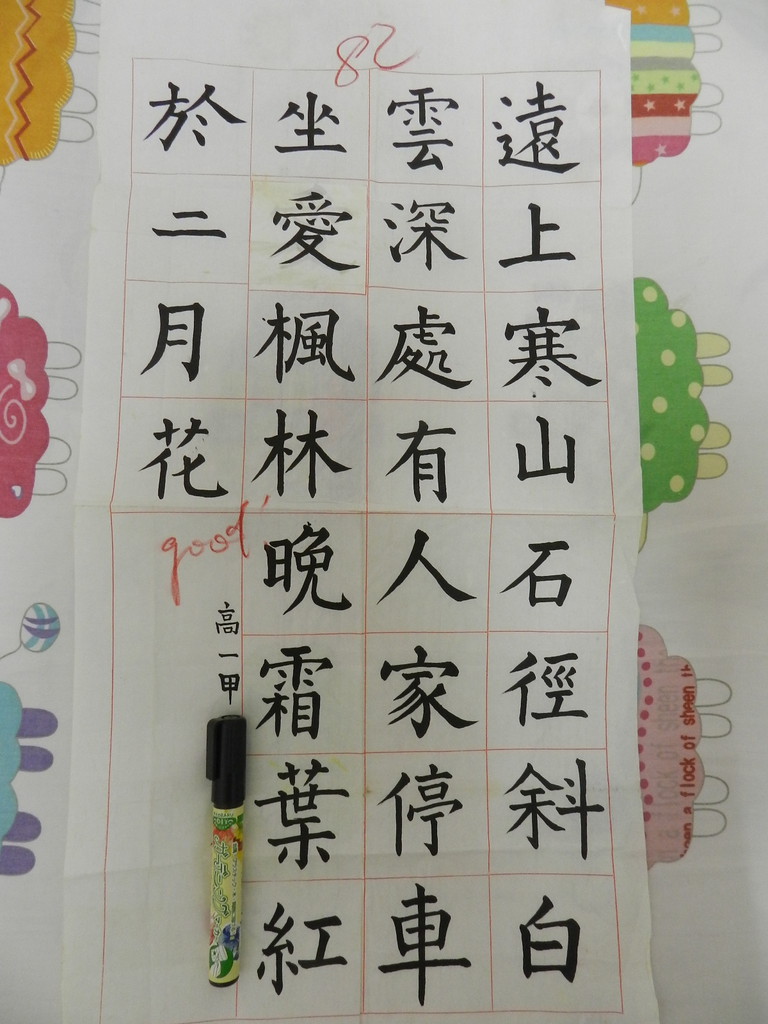 82
遠上寒山石徑斜白
雲深處有人家停車
坐愛楓林晚霜葉紅
於二月花
good
高一甲
a flock of sheen th